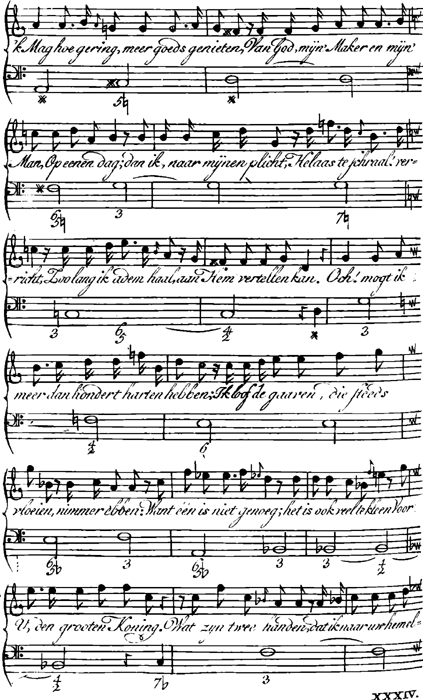 ik Mag hoe gering, meer goeds genieten, Van God, mijn Maker en mijn
Man, Op eenen dag; dan ik, naar mijnen plicht, Helaas te schraal! ver-
-richt, Zoo lang ik adem haal, aan Hem vertellen kan. Och! mogt ik
meer dan hondert harten hebben; Ik lof de gaaren, die steeds
vloeien, nimmer ebben; Want één is niet genoeg; het is ook veel te kleen Voor
U, den grooten Koning. Wat zyn twee handen, dat ik naar uw hemel-
XXXIV.